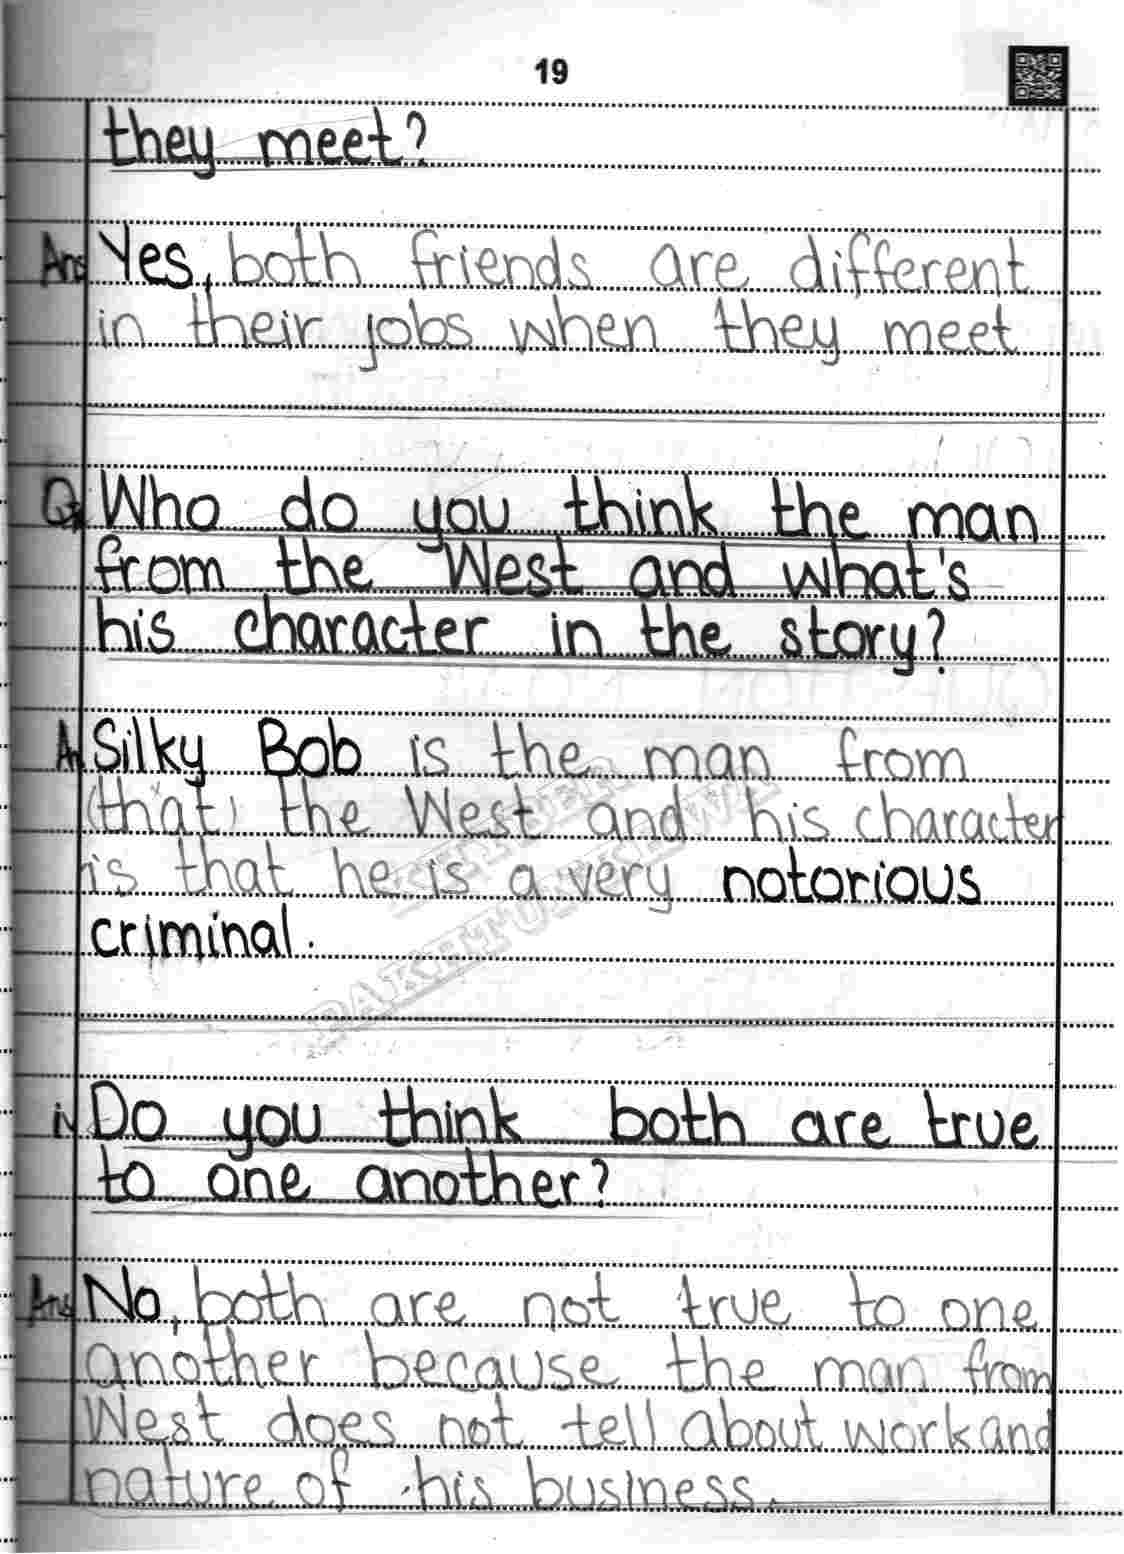 19
they meet?
Ans Yes, both friends are different
in their jobs when they meet
Q Who do you think the man
from the West and what's
his character in the story?
An Silky Bob is the man from
(that) the West and his character
is that he is a very notorious
criminal.
KHYBER
PAKHTUNKHWA
iv Do you think both are true
to one another?
Ans No, both are not true to one
another because the man from
West does not tell about work and
nature of his business.